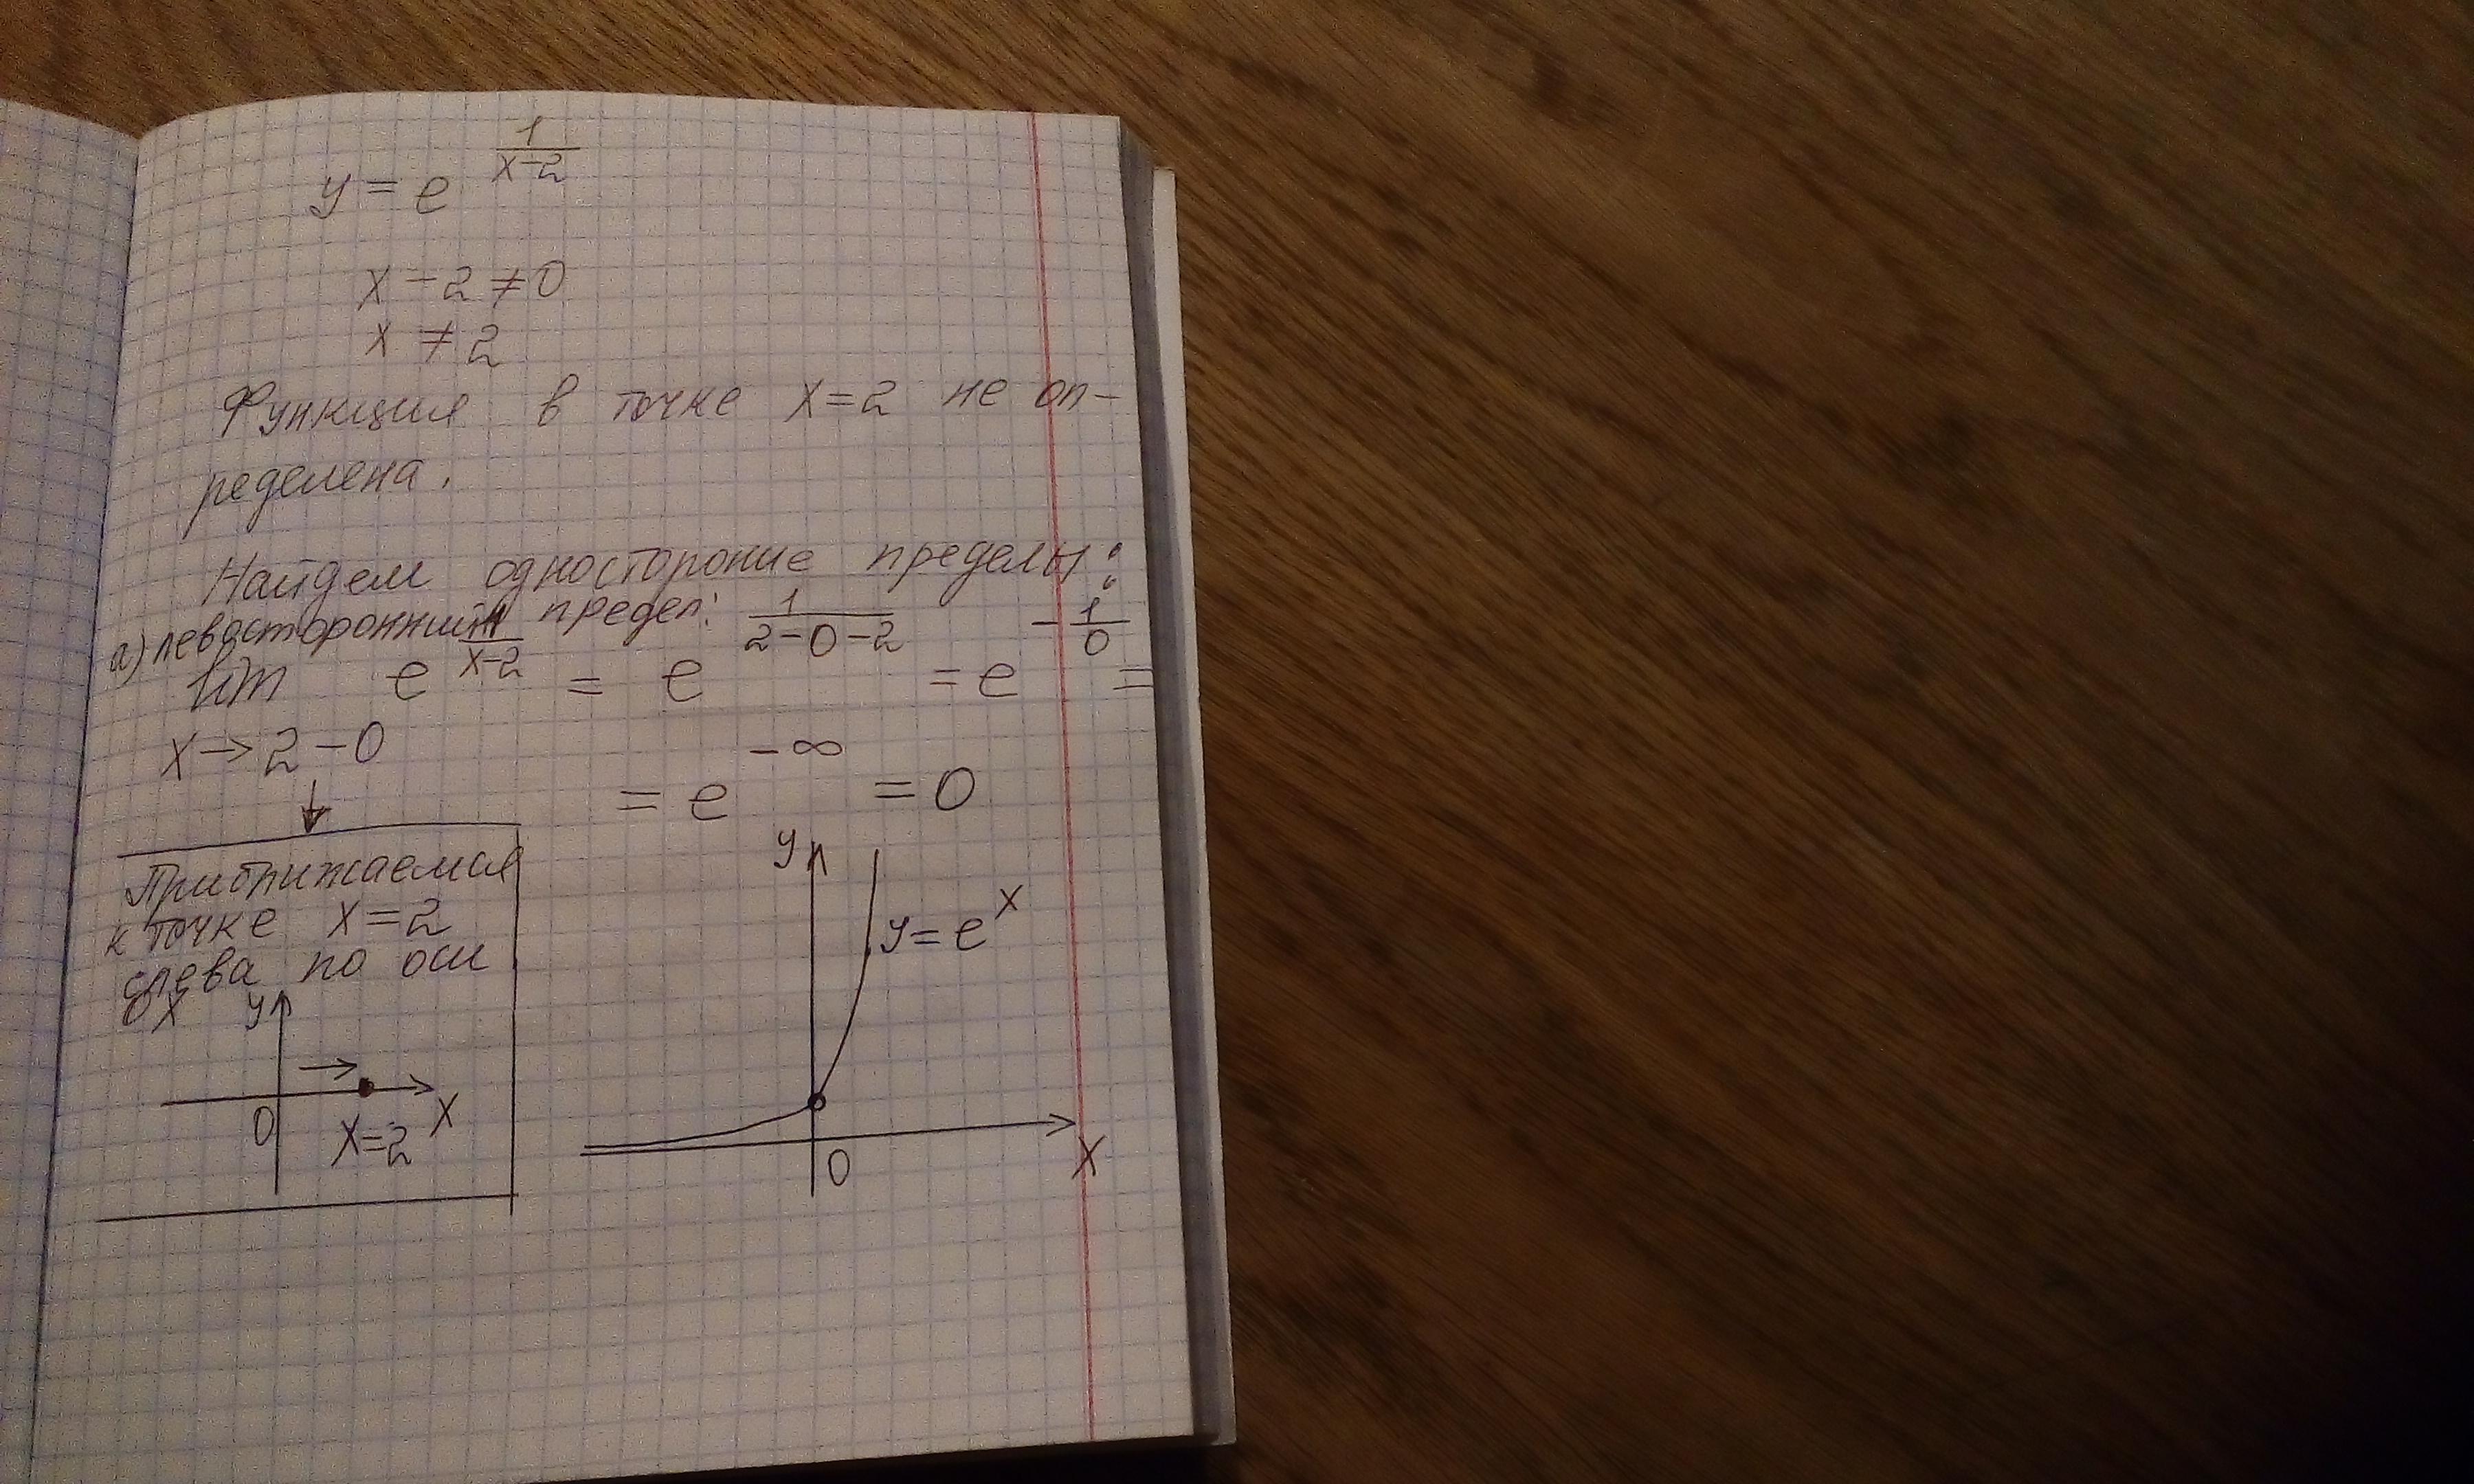 y = e^{\frac{1}{x-2}}
x - 2 ≠ 0
x ≠ 2
Функция в точке x = 2 не оп-
ределена.
Найдем односторонние пределы:
а) левосторонний предел:
lim e^{\frac{1}{x-2}} = e^{\frac{1}{2-0-2}} = e^{-\frac{1}{0}} =
x → 2 - 0
= e^{-∞} = 0
Приближаемся
к точке x = 2
слева по оси
OX
y
0
x = 2
x
y
y = e^x
0
x